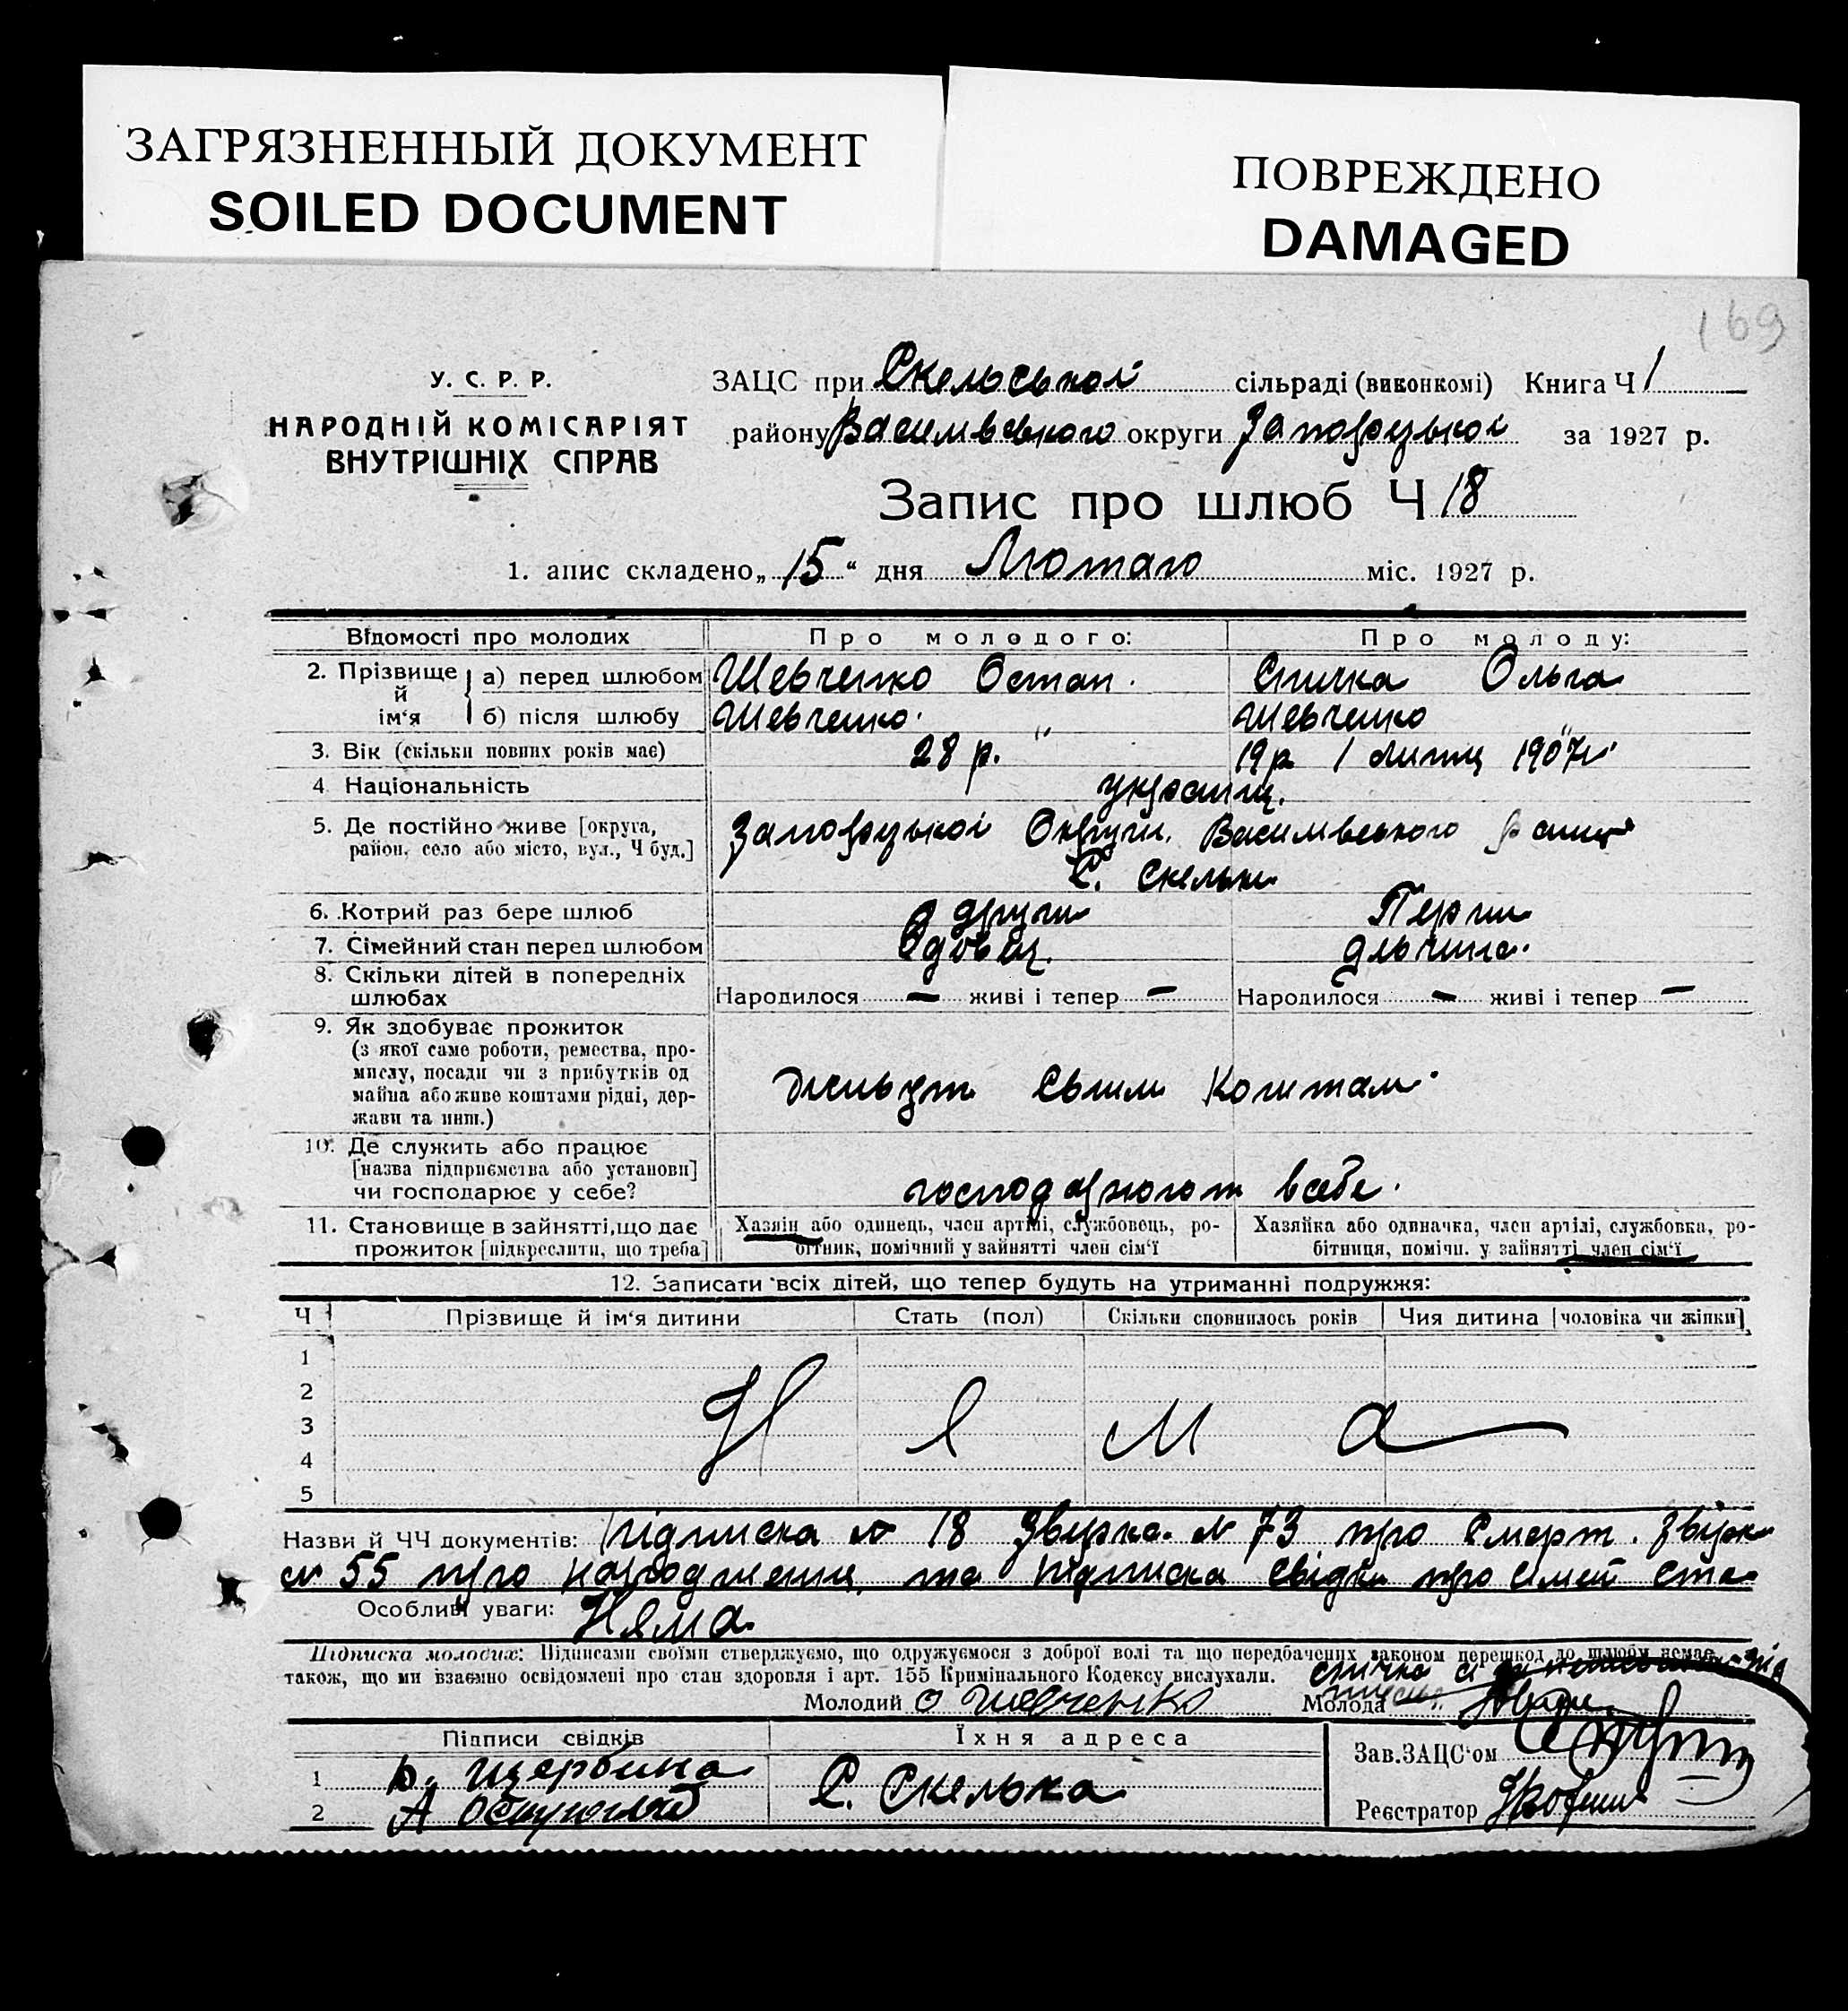 ЗАГРЯЗНЕННЫЙ ДОКУМЕНТ
SOILED DOCUMENT
ПОВРЕЖДЕНО
DAMAGED
169
У. С. Р. Р.
НАРОДНІЙ КОМІСАРІЯТ
ВНУТРІШНІХ СПРАВ
ЗАЦС при Скельської сільраді (виконкомі) Книга Ч 1
району Василівського округи Запорізької за 1927 р.
Запис про шлюб Ч 18
1. апис складено „15“ дня Лютаго міс. 1927 р.
Відомості про молодих Про молодого: Про молоду:
2. Прізвище й ім‘я а) перед шлюбом Шевченко Остап. Спичка Ольга
б) після шлюбу Шевченко " Шевченко "
3. Вік (скільки повних років має) 28 р. 19 р 1 липц 1907
4 Національність україн.
5. Де постійно живе [округа, район, село або місто, вул., Ч буд.] Запорізької Округи. Василівського
С. Скельки
6. Котрий раз бере шлюб други Перши
7. Сімейний стан перед шлюбом Вдовец. дівчина.
8. Скільки дітей в попередніх шлюбах Народилося — живі і тепер — Народилося — живі і тепер —
9. Як здобуває прожиток
(з якої саме роботи, ремества, про-
мислу, посади чи з прибутків од
майна або живе коштами рідні, дер-
жави та инш.)
живут своим коштам
10. Де служить або працює
[назва підприємства або установи]
чи господарює у себе?
господарюют всебе.
11. Становище в зайнятті, що дає
прожиток [підкреслити, що треба]
Хазяін або одинець, член артілі, службовець, ро-
бітник, помічний у зайнятті член сім‘ї
Хазяйка або одиначка, член артілі, службовка, ро-
бітниця, помічн. у зайнятті член сім‘ї
12. Записати всіх дітей, що тепер будуть на утриманні подружжя:
Ч Прізвище й ім‘я дитини Стать (пол) Скільки сповнилось років Чия дитина [чоловіка чи жінки]
1
2
3 Няма
4
5
Назви й ЧЧ документів: Підписка № 18 Звірка № 73 про Смерт. Звірк
№ 55 про народженя та підписка свідків про симей ста
Особливі уваги: Няма
Підписка молодих: Підписами своїми стверджуємо, що одружуємося з доброї волі та що передбачених законом перешкод до шлюбу немає,
також, що ми взаємно освідомлені про стан здоровля і арт. 155 Кримінального Кодексу вислухали. спичка
Молодий О Шевченко Молода
Підписи свідків Їхня адреса Зав. ЗАЦС‘ом
1 Щербина С. Скелька
2 А Реєстратор